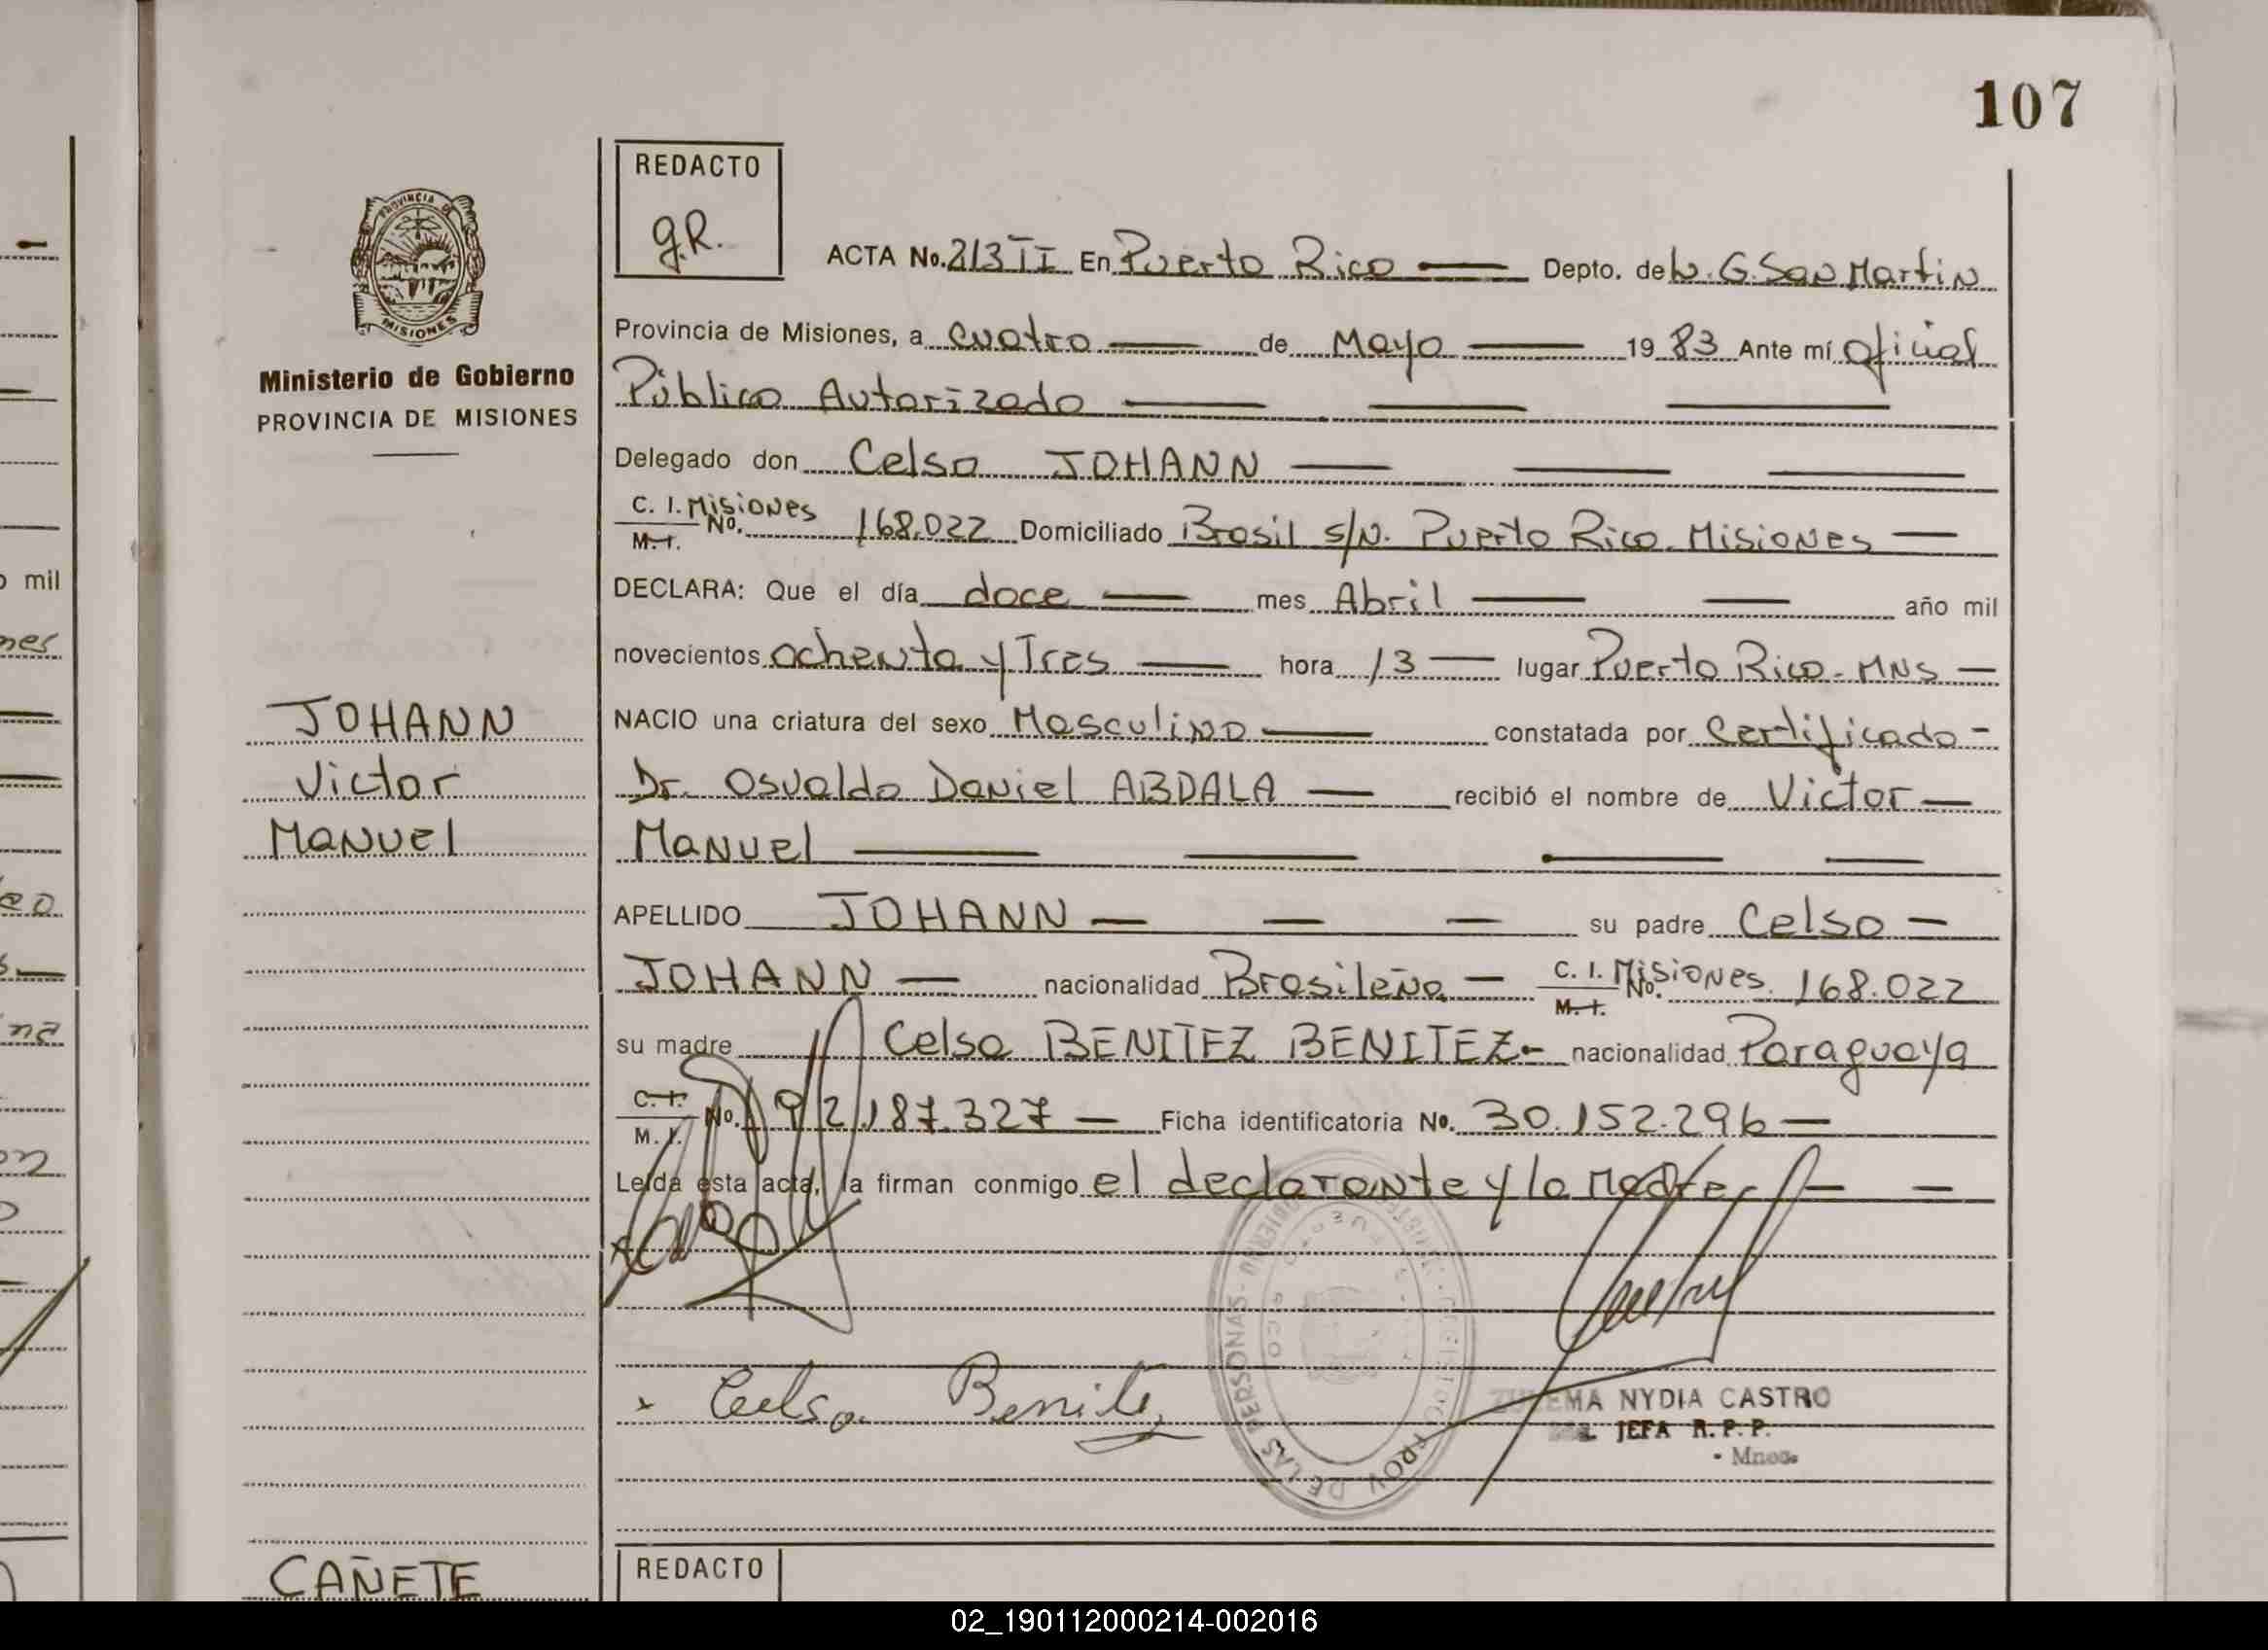 107
REDACTO
g.R.
PROVINCIA DE
MISIONES
Ministerio de Gobierno
PROVINCIA DE MISIONES
ACTA No. 213 II En Puerto Rico Depto. de L. G. San Martin
Provincia de Misiones, a cuatro de Mayo 1983 Ante mí oficial
Público Autorizado
Delegado don Celso JOHANN
C. I. Misiones
M. I. No. 168.022 Domiciliado Brasil s/N. Puerto Rico. Misiones
DECLARA: Que el día doce mes Abril año mil
novecientos ochenta y Tres hora 13 lugar Puerto Rico - MNS
NACIO una criatura del sexo Masculino constatada por Certificado
Dr. Osvaldo Daniel ABDALA recibió el nombre de Victor
Manuel
APELLIDO JOHANN su padre Celso
JOHANN nacionalidad Brasileña C. I. Misiones
M. I. No. 168.022
su madre Celsa BENITEZ BENITEZ nacionalidad Paraguaya
C. I.
M. I. No. 92.187.327 Ficha identificatoria No. 30.152.296
Leída esta acta, la firman conmigo el declarante y la Madre
JOHANN
Victor
Manuel
x Celsa Benitez
ZULEMA NYDIA CASTRO
JEFA R. P. P.
DE LAS PERSONAS
REDACTO
CAÑETE
o mil
nes
eo
na
on
02_190112000214-002016